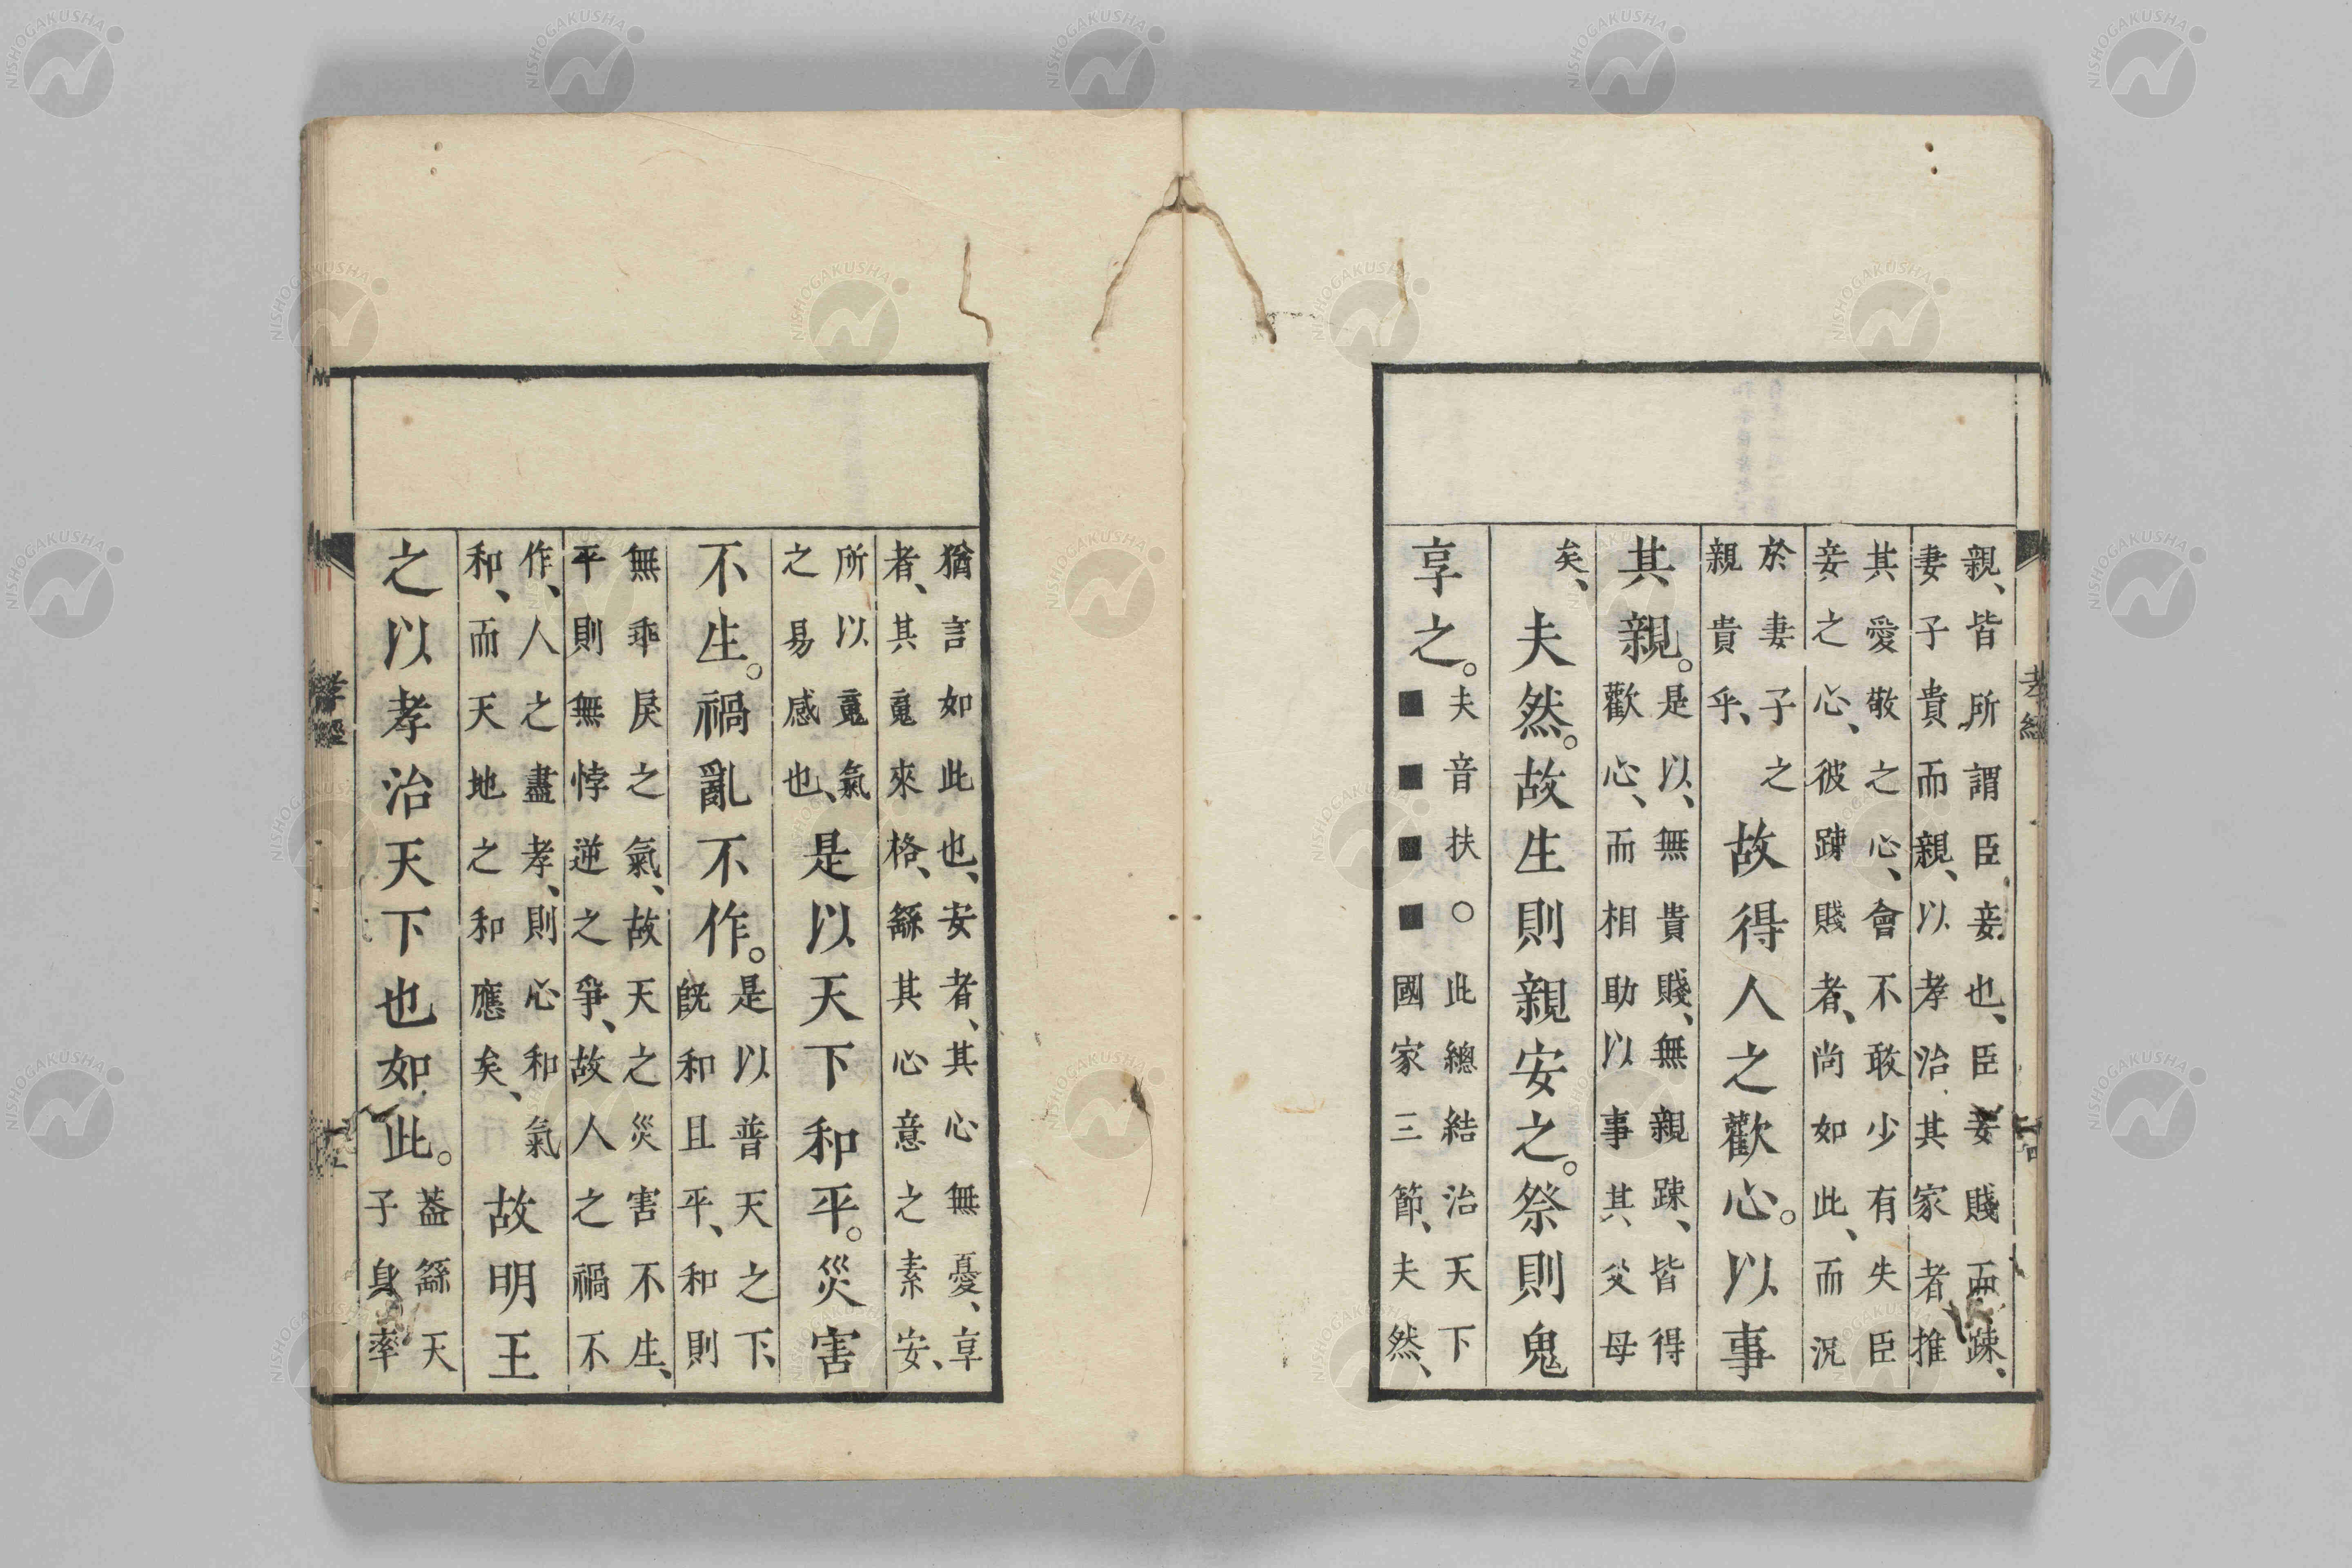 孝經
親、皆所謂臣妾也、臣妾賤而踈、
妻子貴而親、以孝治其家者推
其愛敬之心、會不敢少有失臣
妾之心、彼踈賤者、尚如此、而況
於妻子之
親貴乎、
故得人之歡心。以事
其親。
是以、無貴賤、無親踈、皆得
歡心、而相助以事其父母
矣、
夫然。故生則親安之。祭則鬼
享之。
夫音扶○此總結治天下
■■■■國家三節、夫然、
猶言如此也、安者、其心無憂、享
者、其䰟來格、繇其心意之素安、
所以䰟氣
之易感也、
是以天下和平。災害
不生。禍亂不作。
是以普天之下、
旣和且平、和則
無乖戾之氣、故天之災害不生、
平則無悖逆之爭、故人之禍不
作、人之盡孝、則心和氣
和、而天地之和應矣、
故明王
之以孝治天下也如此。
葢繇天
子身率
孝經